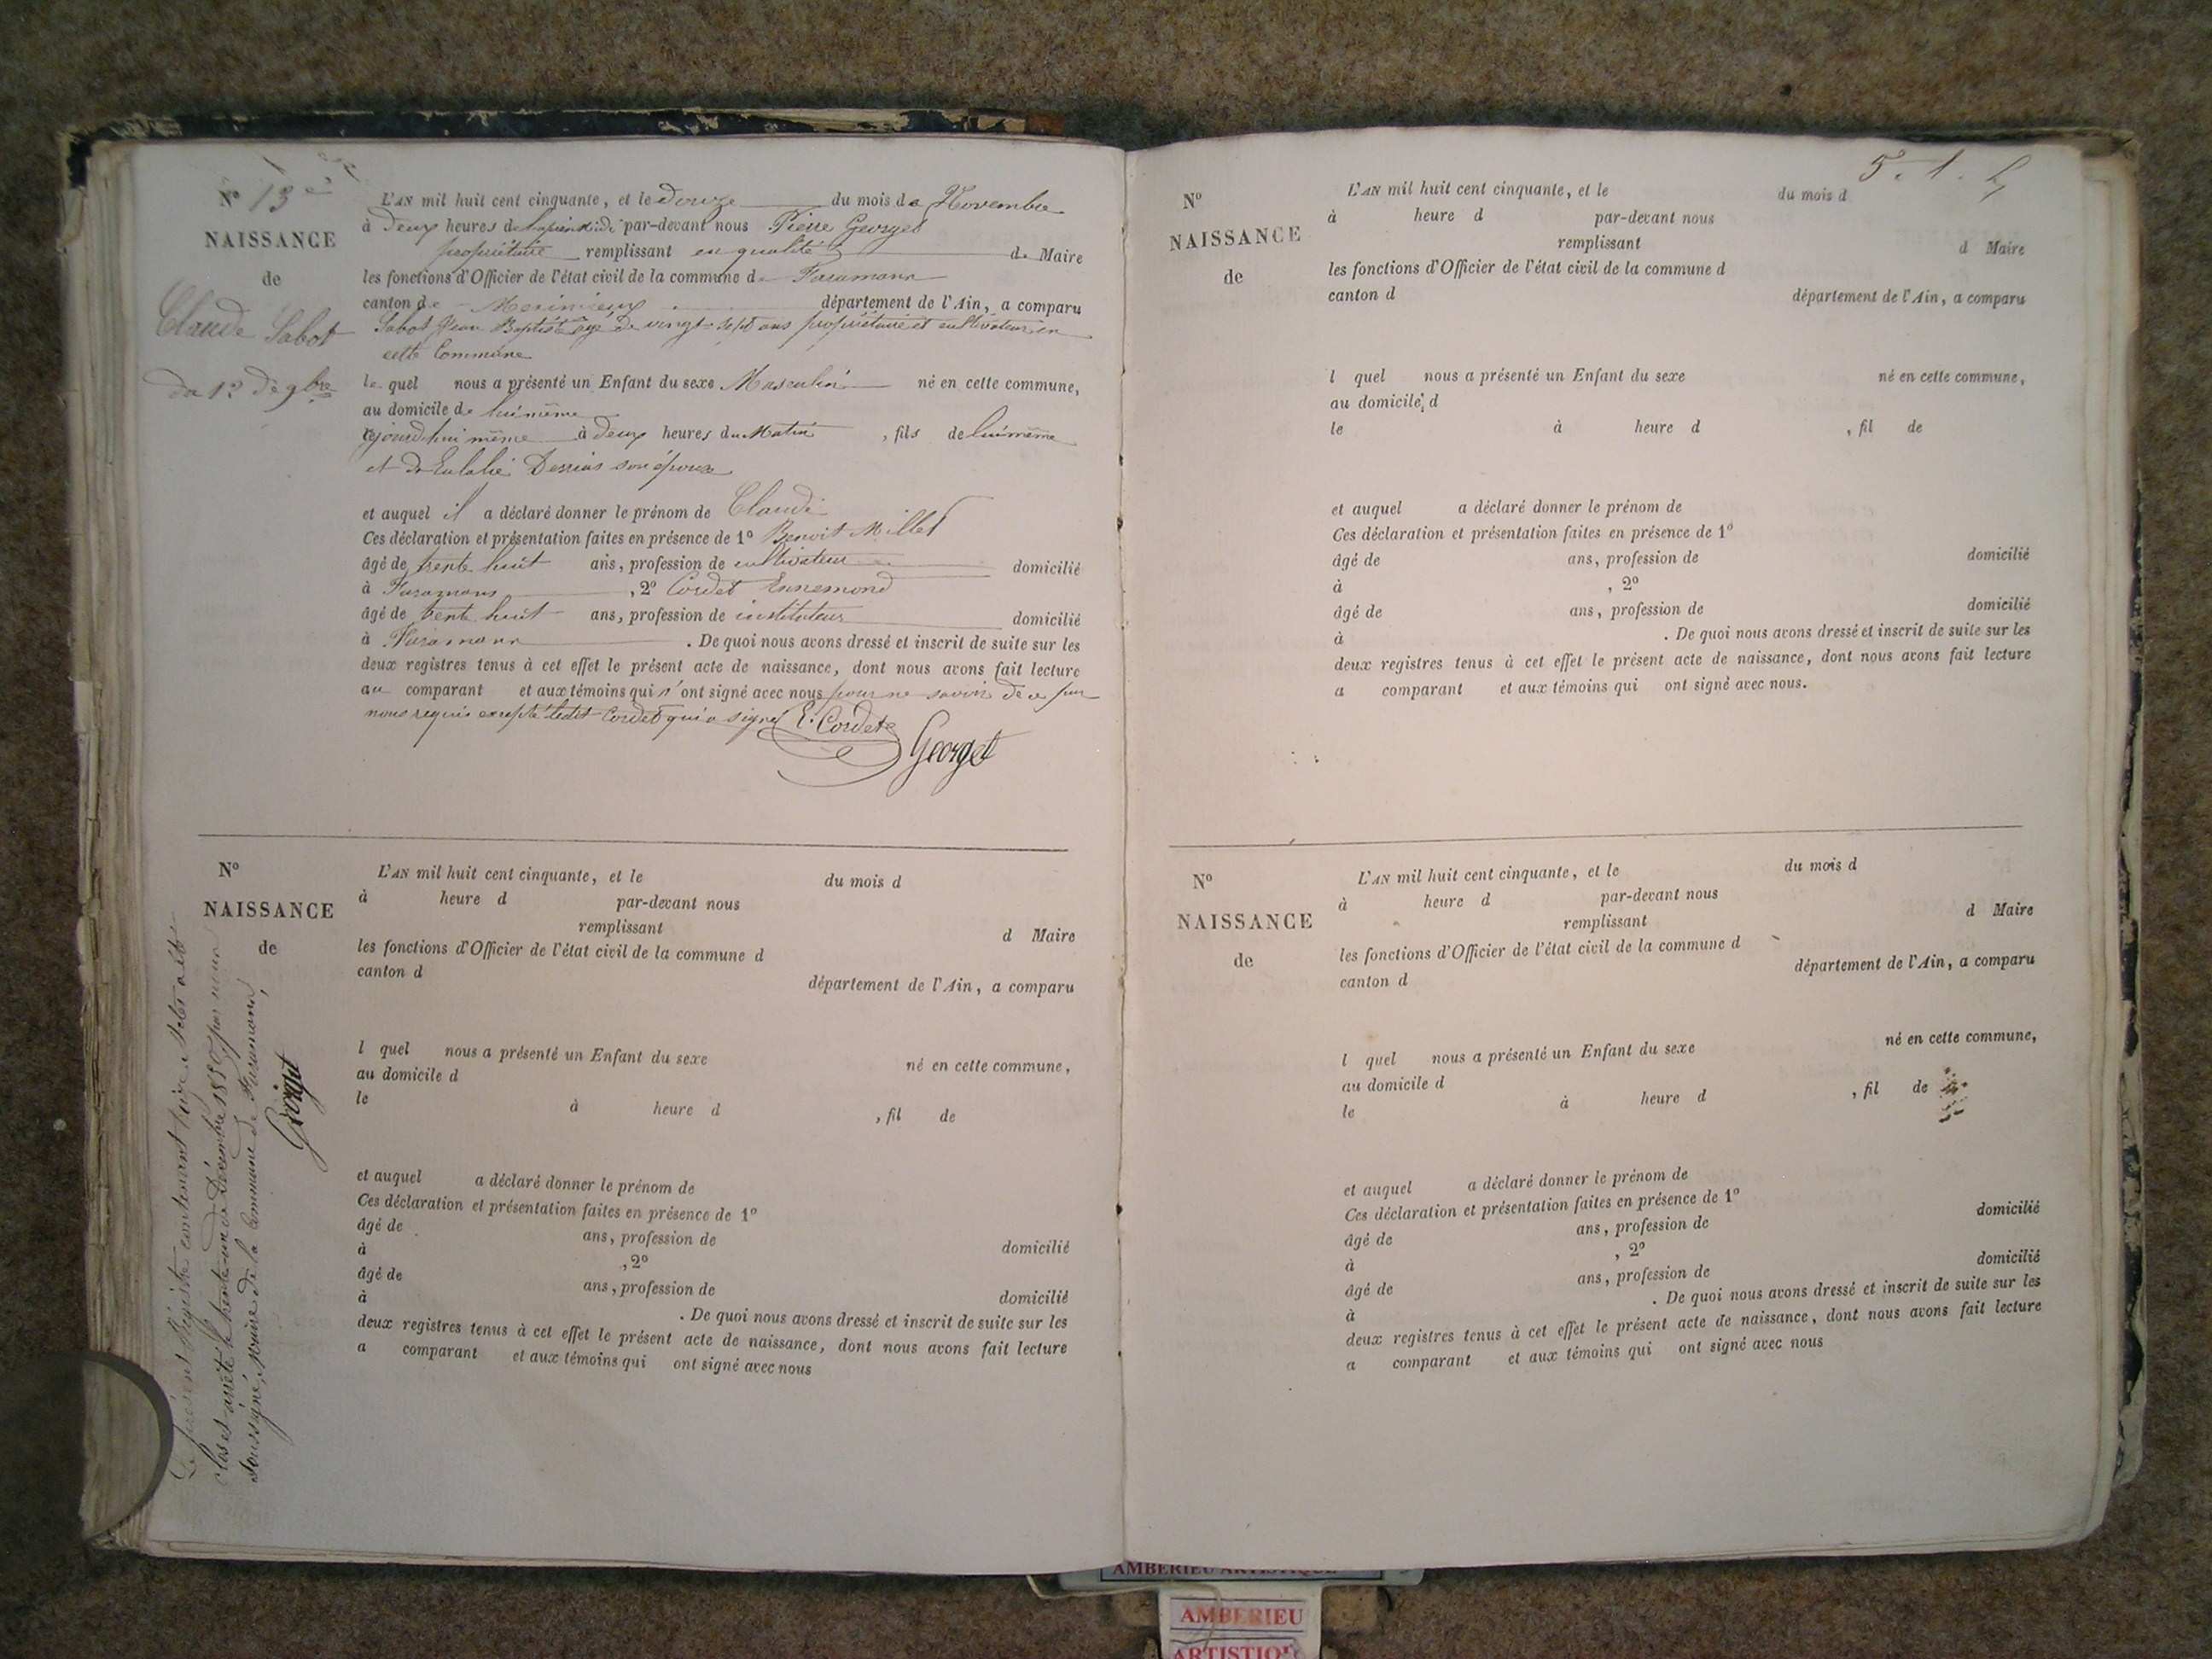 N° 13
NAISSANCE
de
Claude Sabot
du 12 de 9bre
L'AN mil huit cent cinquante, et le Douze du mois de Novembre
à Deux heures de l'après midi par-devant nous Pierre Georget
propriétaire remplissant en qualité de Maire
les fonctions d'Officier de l'état civil de la commune de Faramans
canton de Meximieux département de l'Ain, a comparu
Sabot Jean Baptiste agé de vingt-sept ans propriétaire et cultivateur en
cette Commune
le quel nous a présenté un Enfant du sexe Masculin né en cette commune,
au domicile de lui même
cejourd'hui même à deux heures du Matin, fils de lui même
et de Eulalie Dessias son épouse
et auquel il a déclaré donner le prénom de Claude
Ces déclaration et présentation faites en présence de 1° Benoit Millet
âgé de trente huit ans, profession de cultivateur domicilié
à Faramans, 2° Cordet Ennemond
âgé de trente huit ans, profession de instituteur domicilié
à Faramans. De quoi nous avons dressé et inscrit de suite sur les
deux registres tenus à cet effet le présent acte de naissance, dont nous avons fait lecture
au comparant et aux témoins qui n'ont signé avec nous pour ne savoir de ce par
nous requis excepté ledit Cordet qui a signé E. Cordet
Georget
N°
NAISSANCE
de
L'AN mil huit cent cinquante, et le du mois d
à heure d par-devant nous
remplissant d Maire
les fonctions d'Officier de l'état civil de la commune d
canton d département de l'Ain, a comparu
l quel nous a présenté un Enfant du sexe né en cette commune,
au domicile d
le à heure d , fil de
et auquel a déclaré donner le prénom de
Ces déclaration et présentation faites en présence de 1°
âgé de ans, profession de domicilié
à , 2°
âgé de ans, profession de domicilié
à . De quoi nous avons dressé et inscrit de suite sur les
deux registres tenus à cet effet le présent acte de naissance, dont nous avons fait lecture
a comparant et aux témoins qui ont signé avec nous
Le présent Régistre contenant treize actes a été
clos et arrêté le trente-un Décembre 1850 par nous
soussigné, maire de la commune de Faramans,
Georget
5.1.
N°
NAISSANCE
de
L'AN mil huit cent cinquante, et le du mois d
à heure d par-devant nous
remplissant d Maire
les fonctions d'Officier de l'état civil de la commune d
canton d département de l'Ain, a comparu
l quel nous a présenté un Enfant du sexe né en cette commune,
au domicile d
le à heure d , fil de
et auquel a déclaré donner le prénom de
Ces déclaration et présentation faites en présence de 1°
âgé de ans, profession de domicilié
à , 2°
âgé de ans, profession de domicilié
à . De quoi nous avons dressé et inscrit de suite sur les
deux registres tenus à cet effet le présent acte de naissance, dont nous avons fait lecture
a comparant et aux témoins qui ont signé avec nous.
N°
NAISSANCE
de
L'AN mil huit cent cinquante, et le du mois d
à heure d par-devant nous
remplissant d Maire
les fonctions d'Officier de l'état civil de la commune d
canton d département de l'Ain, a comparu
l quel nous a présenté un Enfant du sexe né en cette commune,
au domicile d
le à heure d , fil de
et auquel a déclaré donner le prénom de
Ces déclaration et présentation faites en présence de 1°
âgé de ans, profession de domicilié
à , 2°
âgé de ans, profession de domicilié
à . De quoi nous avons dressé et inscrit de suite sur les
deux registres tenus à cet effet le présent acte de naissance, dont nous avons fait lecture
a comparant et aux témoins qui ont signé avec nous
AMBERIEU ARTISTIQUE
AMBERIEU
ARTISTIQUE